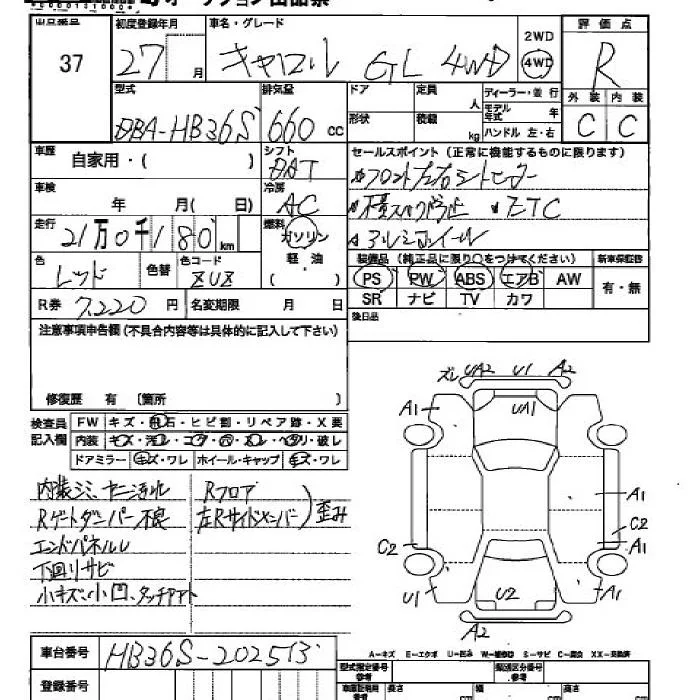 出品番号 初度登録年月 車名・グレード 2WD 4WD 評価点
37 27 月 キャロル GL 4WD R
型式 排気量 ドア 定員 人 ディーラー・並行 外装 内装
DBA-HB36S 660 cc 形状 積載 kg モデル年式 年 ハンドル 左・右 C C
車歴 自家用・( ) シフト セールスポイント(正常に機能するものに限ります)
車検 年 月( 日) 冷房 AC
走行 21万0千180km 燃料 ガソリン ETC
軽油 アルミホイール
色 レッド 色替 色コード ZUZ ( ) 装備品(純正品に限り○をつけてください) 新車保証書
PS PW ABS エアB AW 有・無
R券 7,220 円 名変期限 月 日 SR ナビ TV カワ
注意事項申告欄(不具合内容等は具体的に記入して下さい) 後日品
修復歴 有 〔箇所 〕
検査員記入欄 FW キズ・飛石・ヒビ割・リペア跡・X要
内装 キズ・汚レ・コゲ・穴・スレ・ヘタリ・破レ
ドアミラー キズ・ワレ ホイール・キャップ キズ・ワレ
ズレ UA2 U1 A2
A1 UA1
内装シミ、ヤニ汚れ Rフロア
Rゲートダンパー不良 左Rサイドメンバー 歪み
エンドパネルU
下回りサビ
小キズ、小凹、タッチアト
A1
C2
C2 A1
U1 U2 A1
A2
A-キズ E-エクボ U-凹み W-補修跡 S-サビ C-腐食 XX-交換済
車台番号 HB36S-202513 型式指定番号 類別区分番号
登録番号 長さ cm 幅 cm 高さ cm